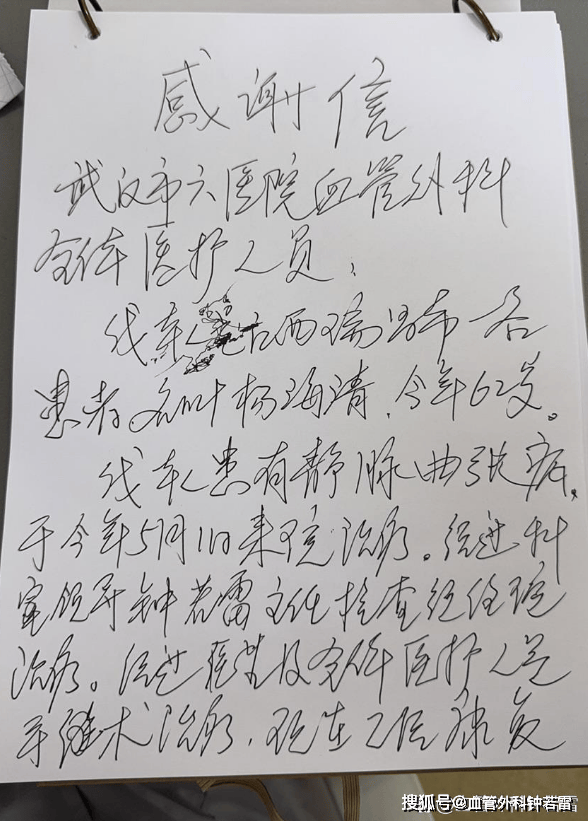 感谢信
武汉市六医院血管外科
全体医护人员:
我本人是江西瑞昌市一名
患者名叫杨海清,今年62岁。
我本人患有静脉曲张病,
于今年5月11日来院治病。经过科
室领导钟若雷主任检查经住院
治病。经过医生及全体医护人员
手术治病,现在已经康复
搜狐号@血管外科钟若雷